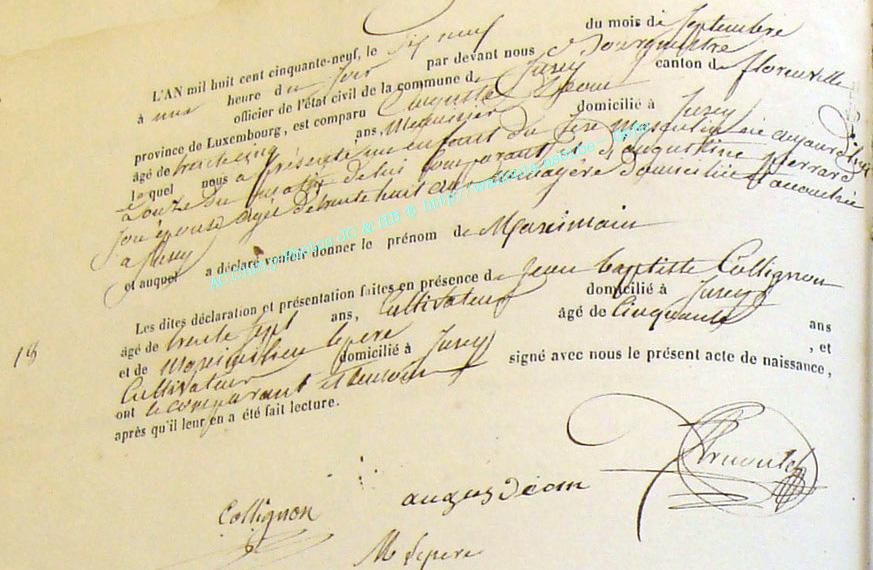 L'AN mil huit cent cinquante-neuf, le dix neuf du mois de Septembre
à une heure du soir par devant nous Bourgmestre
officier de l'état civil de la commune de Jusey canton de florenville
province de Luxembourg, est comparu Auguste Déom
âgé de trente cinq ans, Meunier domicilié à Jusey
lequel nous a présenté un enfant du sexe masculin né aujourd'hui
à onze du matin de lui comparant et d'augustine pierrard
son épouse agée de trente huit ans Ménagère domiciliée accouchée
a Jusey
et auquel a déclaré vouloir donner le prénom de Maximain
Les dites déclaration et présentation faites en présence de Jean baptiste Collignon
âgé de trente sept ans, Cultivateur domicilié à Jusey
et de Maximilien lepere âgé de Cinquante ans
Cultivateur domicilié à Jusey , et
ont le comparant et temoins signé avec nous le présent acte de naissance,
après qu'il leur en a été fait lecture.
18
Collignon
august déom
M Lepere